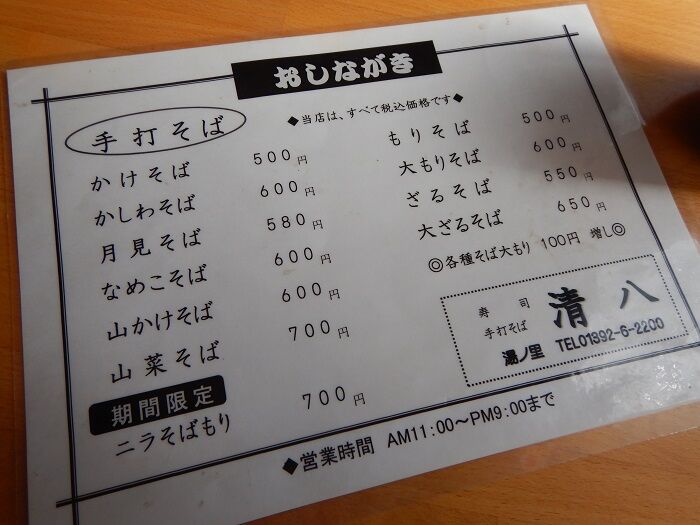 おしながき
◆当店は、すべて税込価格です◆
手打そば
かけそば 500円
かしわそば 600円
月見そば 580円
なめこそば 600円
山かけそば 600円
山菜そば 700円
期間限定
ニラそばもり 700円
もりそば 500円
大もりそば 600円
ざるそば 550円
大ざるそば 650円
◎各種そば大もり 100円 増し◎
寿司
手打そば
清八
湯ノ里 TEL01392-6-2200
◆営業時間 AM11:00〜PM9:00まで